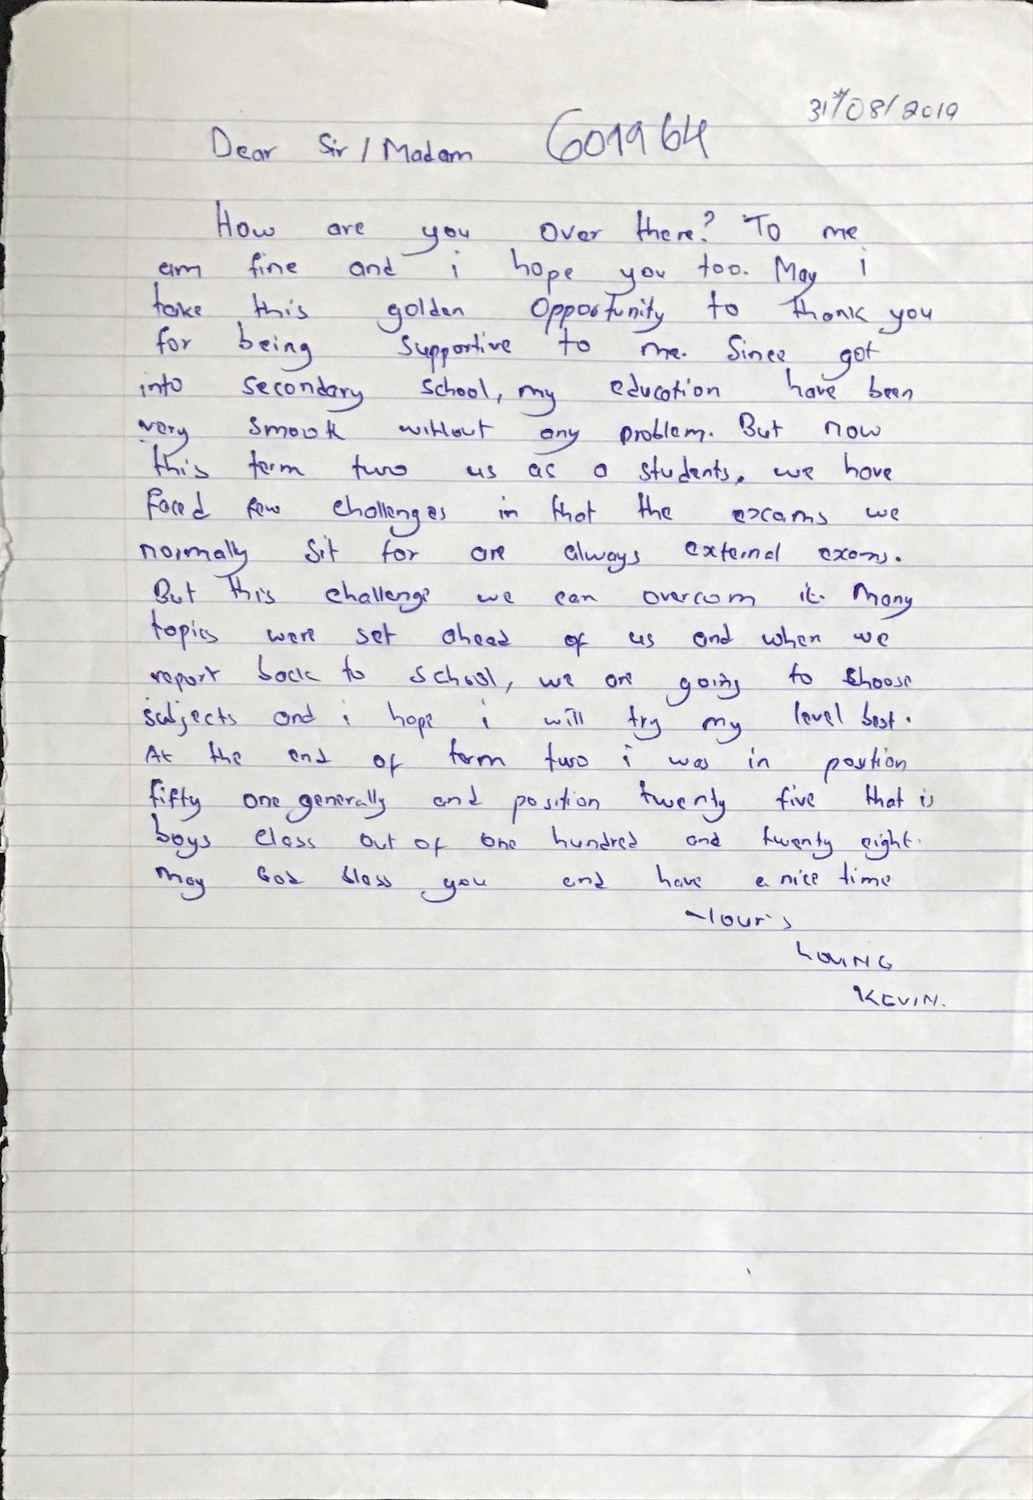 31st/08/2019
Dear Sir/Madam 601964
How are you over there? To me
am fine and i hope you too. May i
take this golden Opportunity to thank you
for being supportive to me. Since got
into secondary school, my education have been
very smook without any problem. But now
this term two us as a students, we have
faced few challenges in that the excams we
normally sit for are always external exams.
But This challenge we can overcom it. Many
topics were set ahead of us and when we
report back to school, we are going to choose
subjects and i hope i will try my level best.
At the end of term two i was in position
fifty one generally and position twenty five that is
boys class out of one hundred and twenty eight.
may God bless you and have a nice time
Your's
LOVING
KEVIN.